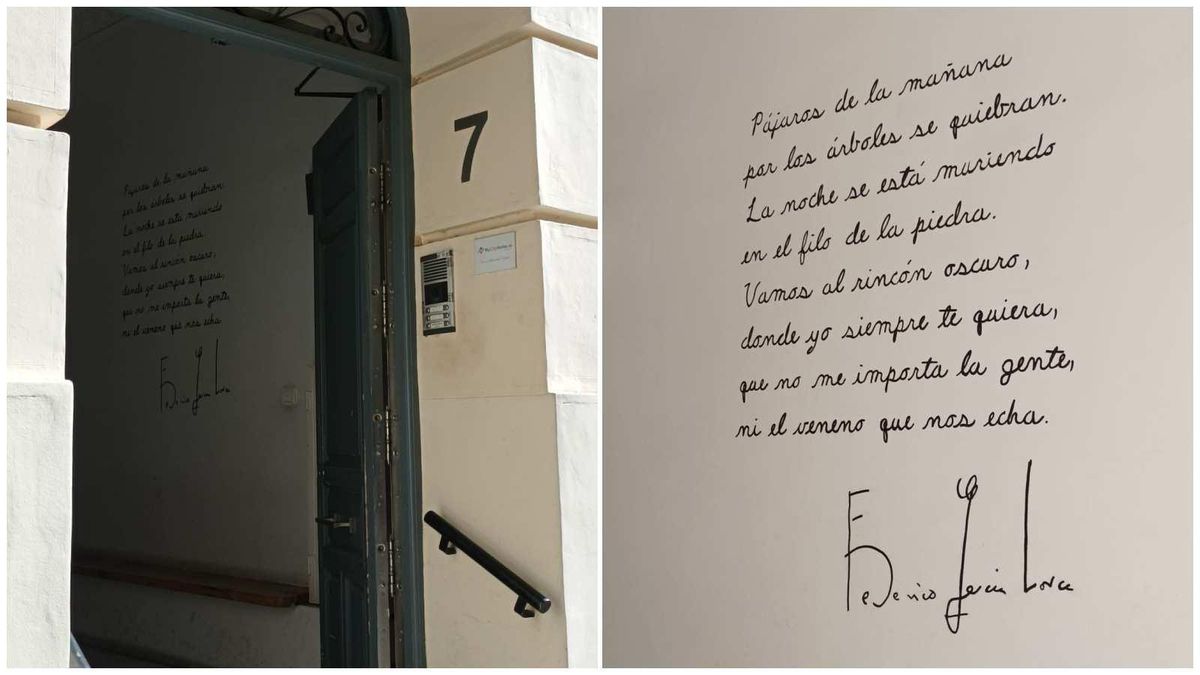 Pájaros de la mañana
por los árboles se quiebran.
La noche se está muriendo
en el filo de la piedra.
Vamos al rincón oscuro,
donde yo siempre te quiera,
que no me importa la gente,
ni el veneno que nos echa.
Federico García Lorca
7
Pájaros de la mañana
por los árboles se quiebran.
La noche se está muriendo
en el filo de la piedra.
Vamos al rincón oscuro,
donde yo siempre te quiera,
que no me importa la gente,
ni el veneno que nos echa.
Federico García Lorca